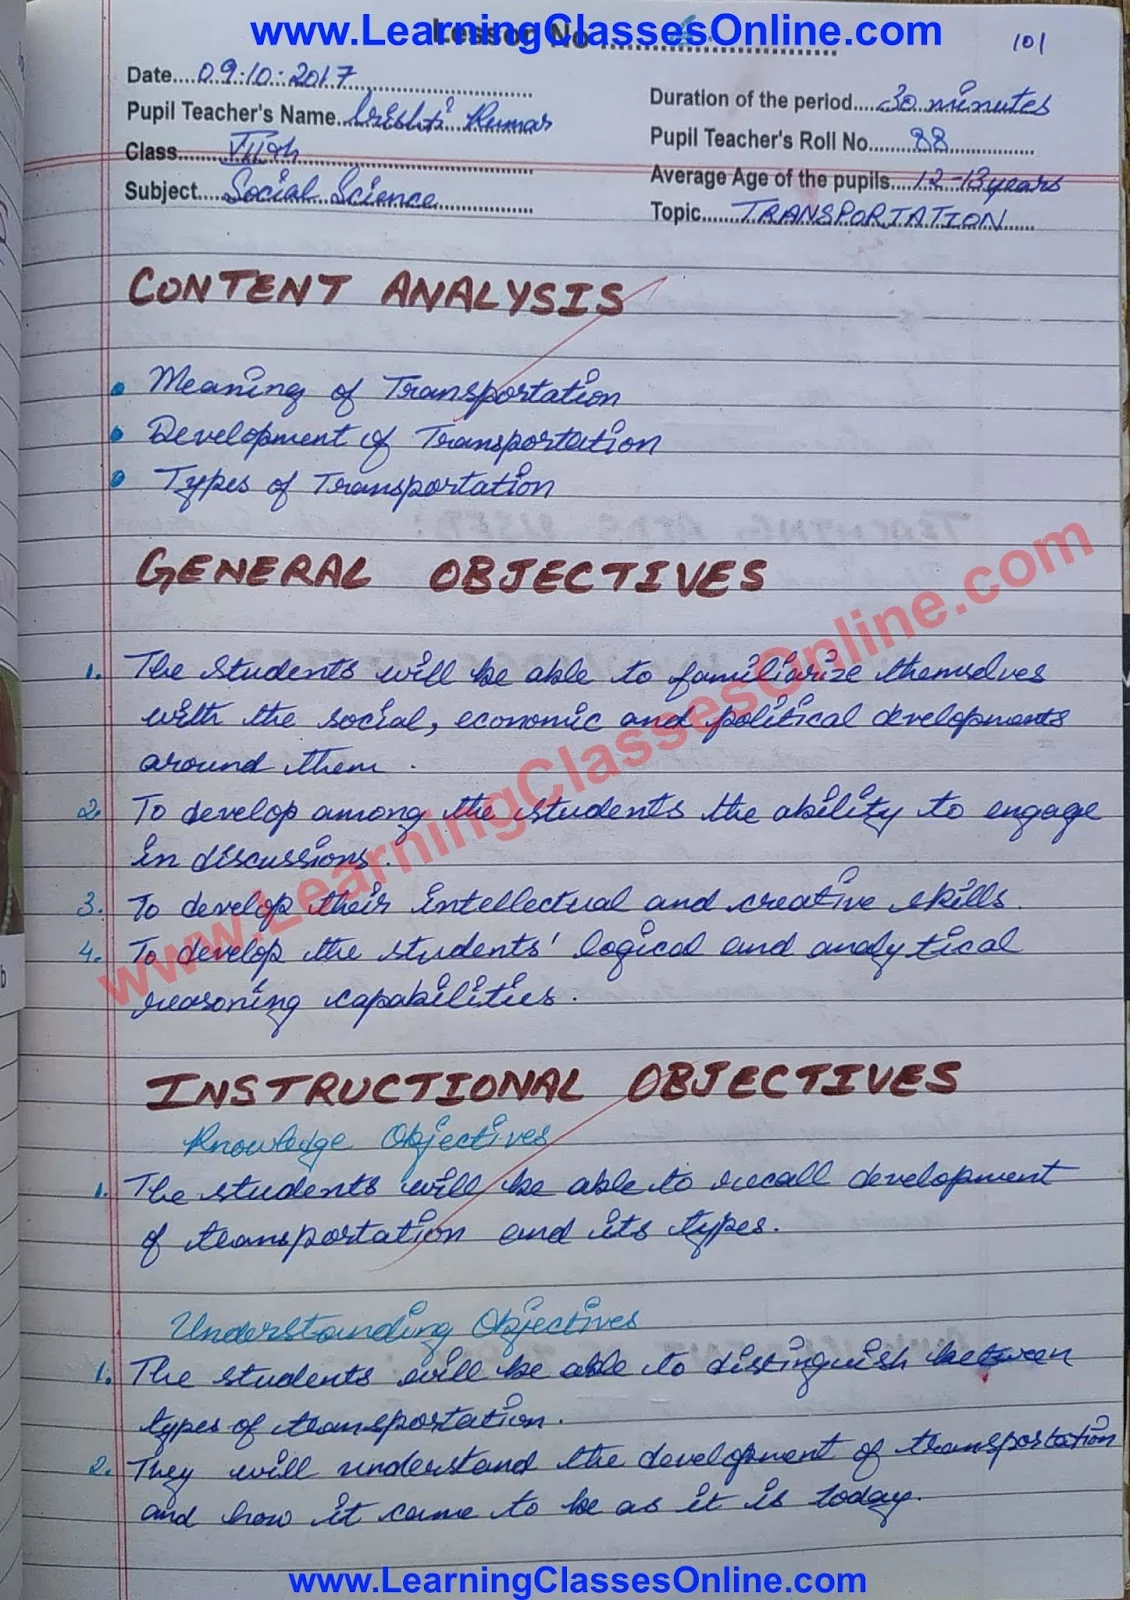 www.LearningClassesOnline.com
Lesson No
101
Date....09:10:2017
Duration of the period....30 minutes
Pupil Teacher's Name... Kumar
Pupil Teacher's Roll No......88
Class.......VIIth
Average Age of the pupils....12-13years
Subject....Social Science
Topic.....TRANSPORTATION
CONTENT ANALYSIS
• Meaning of Transportation
• Development of Transportation
• Types of Transportation
GENERAL OBJECTIVES
1. The students will be able to familiarize themselves
with the social, economic and political developments
around them.
2. To develop among the students the ability to engage
in discussions.
3. To develop their intellectual and creative skills.
4. To develop the students' logical and analytical
reasoning capabilities.
www.LearningClassesOnline.com
INSTRUCTIONAL OBJECTIVES
Knowledge Objectives
1. The students will be able to recall development
of transportation and its types.
Understanding Objectives
1. The students will be able to distinguish between
types of transportation.
2. They will understand the development of transportation
and how it came to be as it is today.
www.LearningClassesOnline.com